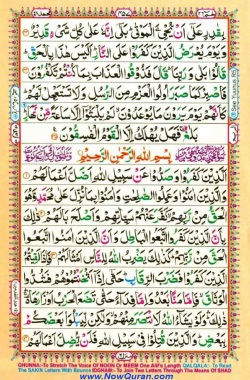 بِقٰدِرٍ عَلٰۤى اَنْ يُّحْیِۦَ الْمَوْتٰى بَلٰۤى اِنَّهٗ عَلٰى كُلِّ شَیْءٍ قَدِیْرٌ
وَيَوْمَ يُعْرَضُ الَّذِيْنَ كَفَرُوْا عَلَى النَّارِ اَلَيْسَ هٰذَا بِالْحَقِّ
قَالُوْا بَلٰى وَرَبِّنَا قَالَ فَذُوْقُوا الْعَذَابَ بِمَا كُنْتُمْ تَكْفُرُوْنَ
فَاصْبِرْ كَمَا صَبَرَ اُولُوا الْعَزْمِ مِنَ الرُّسُلِ وَلَا تَسْتَعْجِلْ لَّهُمْ
كَاَنَّهُمْ يَوْمَ يَرَوْنَ مَا يُوْعَدُوْنَ لَمْ يَلْبَثُوْۤا اِلَّا سَاعَةً مِّنْ نَّهَارٍ
بَلٰغٌ فَهَلْ يُهْلَكُ اِلَّا الْقَوْمُ الْفٰسِقُوْنَ
بِسْمِ اللّٰهِ الرَّحْمٰنِ الرَّحِيْمِ
اَلَّذِيْنَ كَفَرُوْا وَصَدُّوْا عَنْ سَبِيْلِ اللّٰهِ اَضَلَّ اَعْمَالَهُمْ
وَالَّذِيْنَ اٰمَنُوْا وَعَمِلُوا الصّٰلِحٰتِ وَاٰمَنُوْا بِمَا نُزِّلَ عَلٰى مُحَمَّدٍ وَّهُوَ
الْحَقُّ مِنْ رَّبِّهِمْ كَفَّرَ عَنْهُمْ سَيِّاٰتِهِمْ وَاَصْلَحَ بَالَهُمْ ذٰلِكَ
بِاَنَّ الَّذِيْنَ كَفَرُوا اتَّبَعُوا الْبَاطِلَ وَاَنَّ الَّذِيْنَ اٰمَنُوا اتَّبَعُوا
الْحَقَّ مِنْ رَّبِّهِمْ كَذٰلِكَ يَضْرِبُ اللّٰهُ لِلنَّاسِ اَمْثَالَهُمْ فَاِذَا لَقِيْتُمُ
الَّذِيْنَ كَفَرُوْا فَضَرْبَ الرِّقَابِ حَتّٰۤى اِذَاۤ اَثْخَنْتُمُوْهُمْ فَشُدُّوا
الْوَثَاقَ فَاِمَّا مَنًّا بَعْدُ وَاِمَّا فِدَآءً حَتّٰى تَضَعَ الْحَرْبُ اَوْزَارَهَا
ذٰلِكَ وَلَوْ يَشَآءُ اللّٰهُ لَانْتَصَرَ مِنْهُمْ وَلٰكِنْ لِّيَبْلُوَا۟ بَعْضَكُمْ
بِبَعْضٍ وَالَّذِيْنَ قُتِلُوْا فِيْ سَبِيْلِ اللّٰهِ فَلَنْ يُّضِلَّ اَعْمَالَهُمْ
GHUNNA:-To Stretch The Voice Of NOON Or MEEM One Alif's Length QALQALA:- To Read
The SAKIN Letters With Bounce IDGHAM:- To Join Two Letters Through The Means Of SHAD
www.NowQuran.com